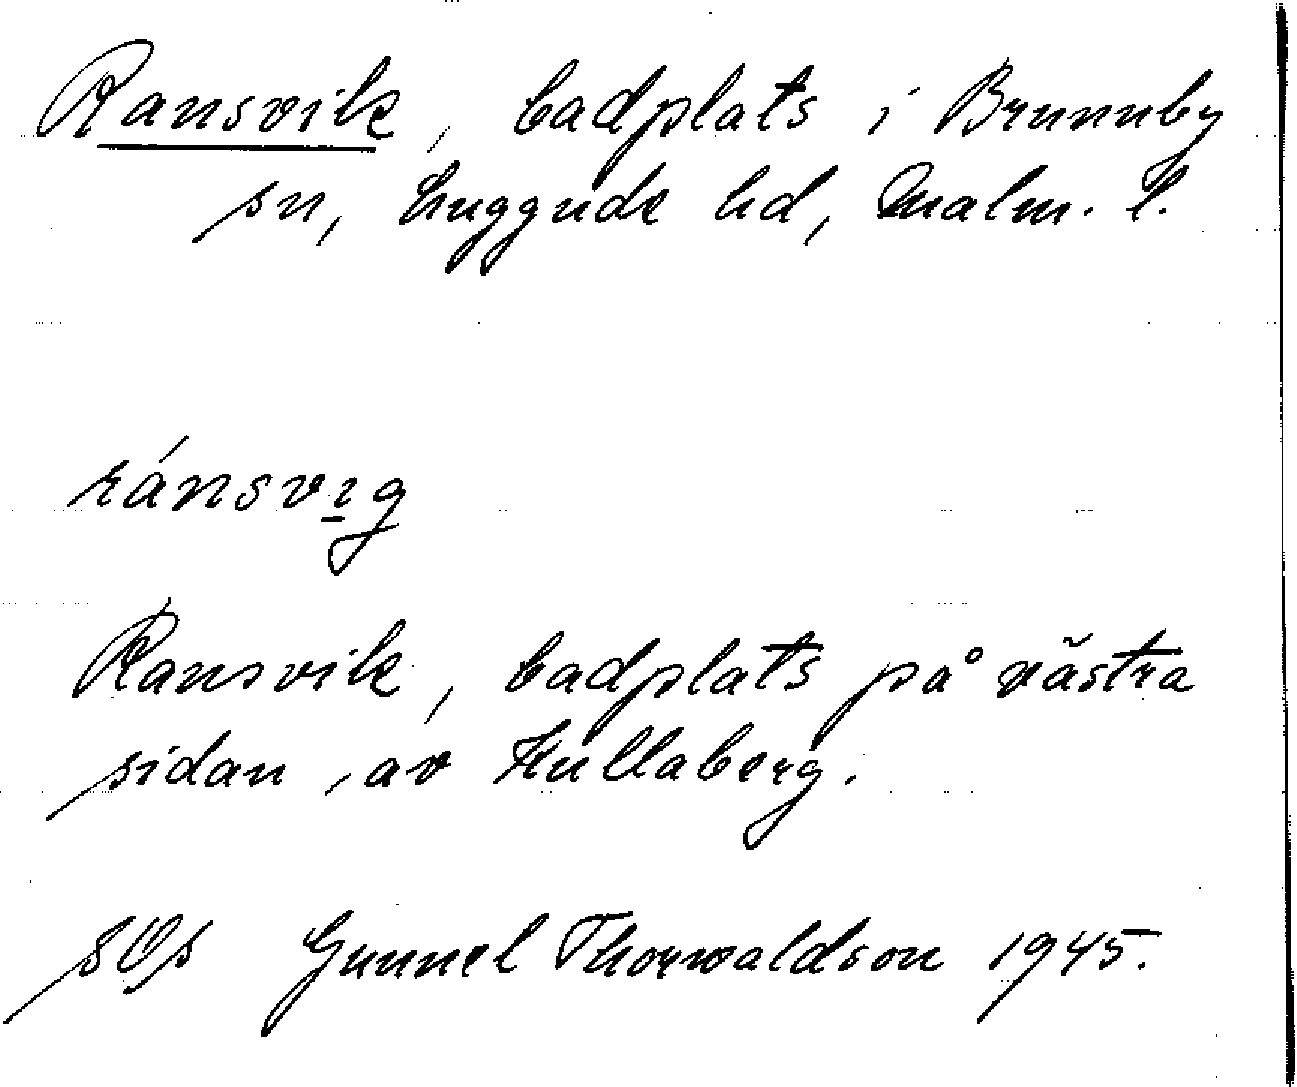 Ransvik, badplats i Brunnby
sn, Luggude hd, Malm. l.
ránsvıg
Ransvik, badplats på västra
sidan av Kullaberg.
Gunnel Thorwaldson 1945.